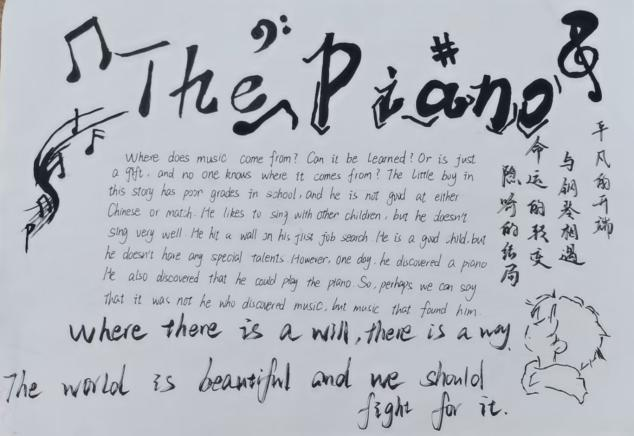 The Piano
Where does music come from? Can it be learned? Or is just
a gift, and no one knows where it comes from? The Little boy in
this story has poor grades in school, and he is not good at either
Chinese or match. He likes to sing with other children, but he doesn't
sing very well. He hit a wall on his fist job search. He is a good child, but
he doesn't have any special talents. However, one day, he discovered a piano
He also discovered that he could play the piano. So, perhaps we can say
that it was not he who discovered music, but music that found him.
Where there is a will, there is a way.
The world is beautiful and we should
fight for it.
平凡的开端
与钢琴相遇
命运的转变
隐喻的结局